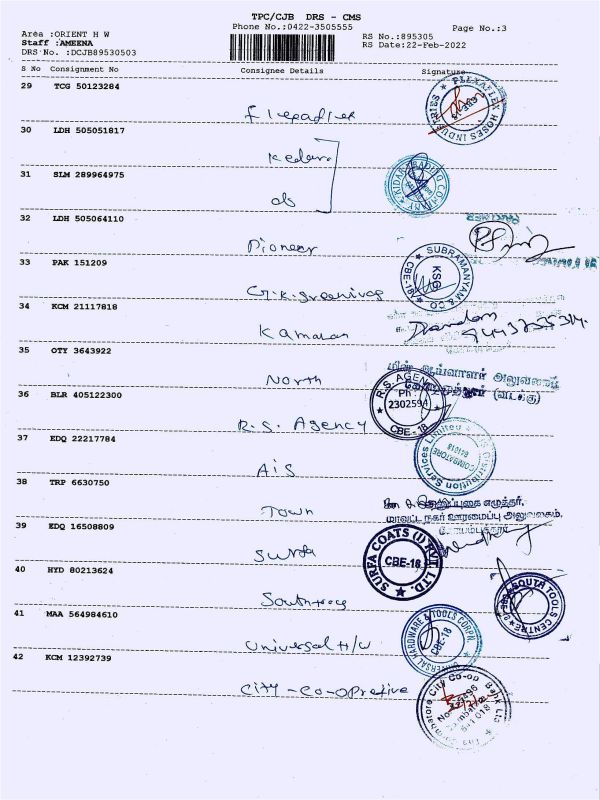 TPC/CJB DRS - CMS
Phone No.:0422-3505555
Page No.:3
Area :ORIENT H W
Staff :AMEENA
DRS No. :DCJB89530503
RS No.:895305
RS Date:22-Feb-2022
S No Consignment No Consignee Details Signature
29 TCG 50123284
FLEXAFLEX HOSES INDUSTRIES
30 LDH 505051817
Kedar
31 SLM 289964975
do
32 LDH 505064110
Pioneer
33 PAK 151209
G.K. Sreenivas
SUBRAMANYAM & CO
KSG
CBE-18
34 KCM 21117818
35 OTY 3643922
North
மின் ஆய்வாளர் அலுவலகம்
(வடக்கு)
36 BLR 405122300
R.S. Agency
R.S. AGENCY
Ph :
2302594
CBE - 18
37 EDQ 22217784
AIS
Distribution Services Limited
COIMBATORE
641018
38 TRP 6630750
Town
மாவட்ட நகர் ஊரமைப்பு அலுவலகம்,
39 EDQ 16508809
Surfa
SURFA COATS (I) PVT. LTD.
CBE-18
40 HYD 80213624
TOOLS CENTRE
41 MAA 564984610
Universal H/W
UNIVERSAL HARDWARE & TOOLS CORPN.
CBE-18
42 KCM 12392739
City - Co-opretive
Coimbatore City Co-op Bank Ltd